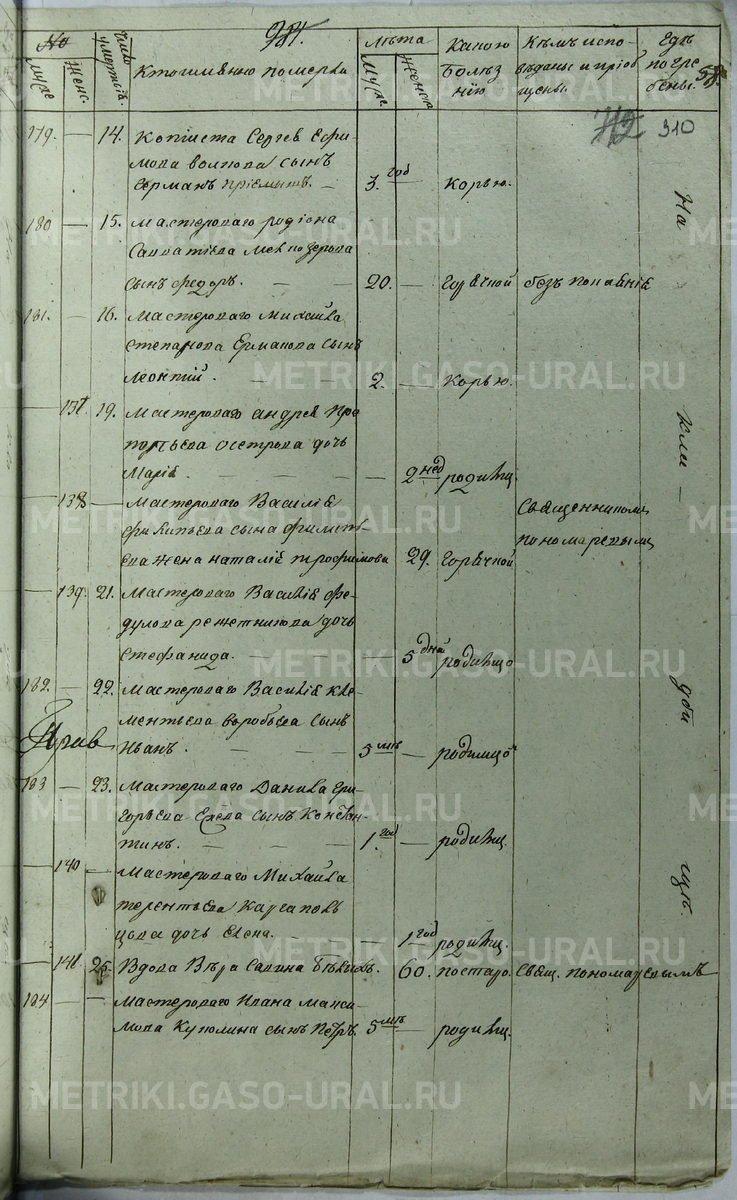 №
муж.
женс.
Число
умерших.
Кто именно померъ
Лѣта
муж.
женск.
Какою
Болѣз
нію
Кѣмъ испо
вѣданы и пріоб
щены.
Гдѣ
погре
бены.
310
179. — 14. Кописта Сергѣя Ефи-
мова Волкова сынъ
Германъ пріемышъ. — 3. год — Корью.
180 — 15. Мастероваго Родіона
Савватіева
сынъ Федоръ. — — 20. — Горячкой безъ покаянія
181. — 16. Мастероваго Михайла
Степанова Ермакова сынъ
Леонтій. — — 2. — Корью.
— 137. 19. Мастероваго Андрея Про
копьева Острова дочь
Марія. — — — 2 нед родимц.
— 138 — Мастероваго Василія
Филипьева сына
жена Наталія Трофимова 29. Горячкой
Священникомъ
Пономаревымъ
— 139. 21. Мастероваго Василія Фе-
дулова Решетникова дочь
Стефанида. — — — 5 дней родимцо
182. — 22. Мастероваго Василія Кле
ментьева Воробьева сынъ
Иванъ. — — 5 мѣ — родимцо
183 — 23. Мастероваго Данила Гри-
горьева Ехова сынъ Констан
тинъ. — — 1. год — родимц.
— 140 — Мастероваго Михайла
Терентьева Каргаполь
цова дочь Елена. — — 1 год родимц.
— 141. 25. Вдова Вѣра Савина 60. постаро. Свящ. Пономаревымъ
184 — — Мастероваго Ивана Макси
мова Куполина сынъ Петръ. 5 мѣ — родимц.
На
кла
—
дби
щѣ.
METRIKI.GASO-URAL.RU